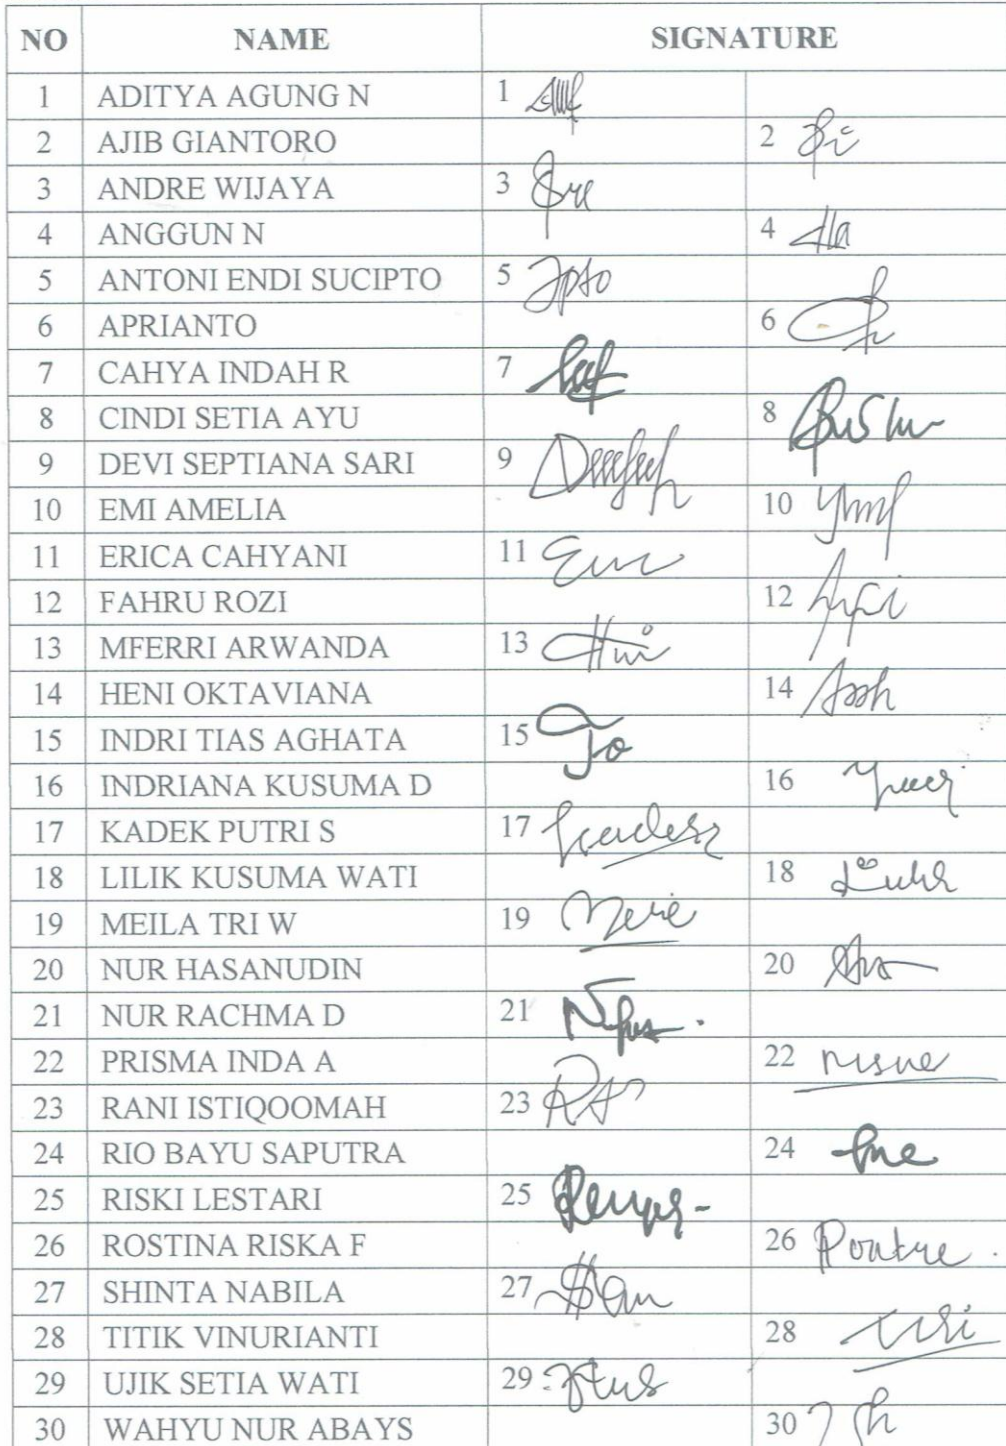 NO NAME SIGNATURE
1 ADITYA AGUNG N 1
2 AJIB GIANTORO 2
3 ANDRE WIJAYA 3
4 ANGGUN N 4
5 ANTONI ENDI SUCIPTO 5
6 APRIANTO 6
7 CAHYA INDAH R 7
8 CINDI SETIA AYU 8
9 DEVI SEPTIANA SARI 9
10 EMI AMELIA 10
11 ERICA CAHYANI 11
12 FAHRU ROZI 12
13 MFERRI ARWANDA 13
14 HENI OKTAVIANA 14
15 INDRI TIAS AGHATA 15
16 INDRIANA KUSUMA D 16
17 KADEK PUTRI S 17
18 LILIK KUSUMA WATI 18
19 MEILA TRI W 19
20 NUR HASANUDIN 20
21 NUR RACHMA D 21
22 PRISMA INDA A 22
23 RANI ISTIQOOMAH 23
24 RIO BAYU SAPUTRA 24
25 RISKI LESTARI 25
26 ROSTINA RISKA F 26
27 SHINTA NABILA 27
28 TITIK VINURIANTI 28
29 UJIK SETIA WATI 29
30 WAHYU NUR ABAYS 30